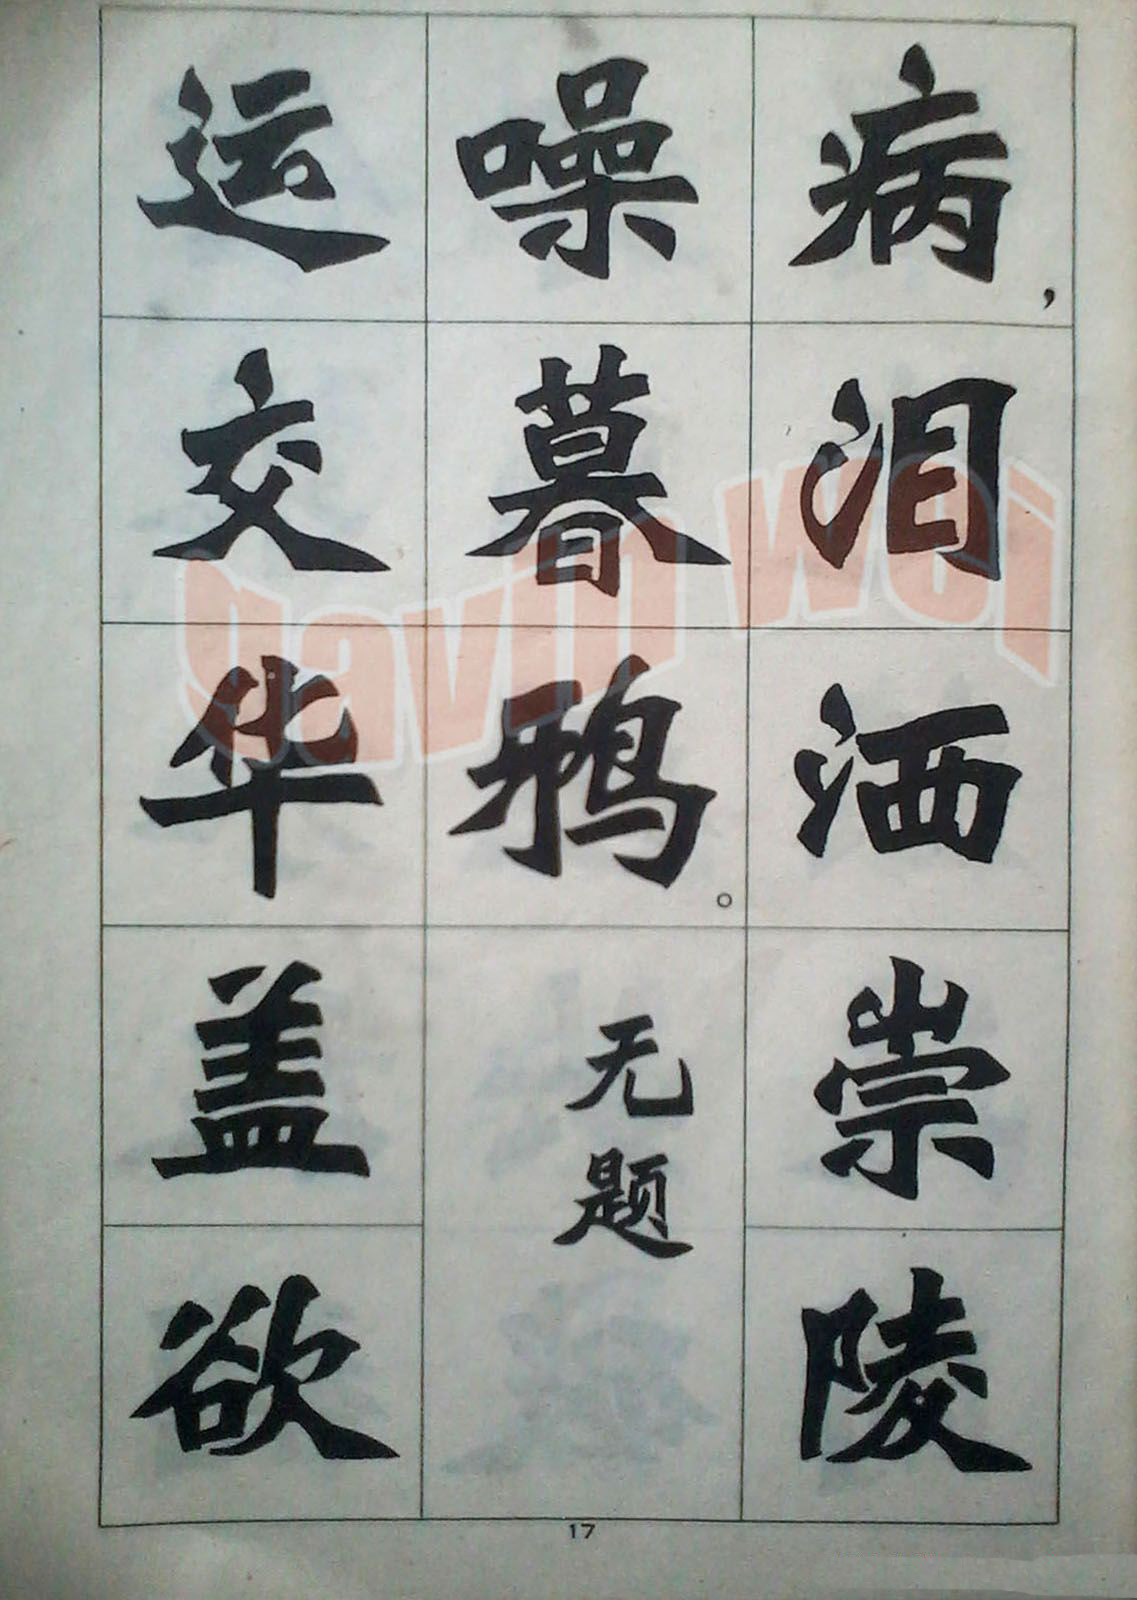 病，泪洒崇陵
噪暮鸦。
无题
运交华盖欲
17
gavin wei